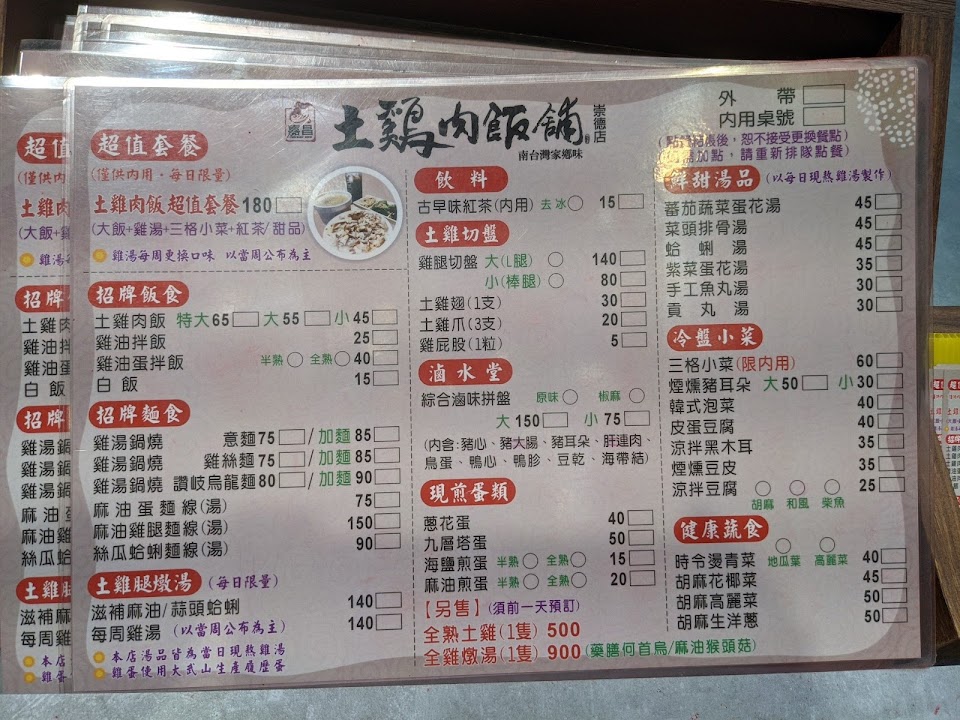 嘉昌
土鷄肉飯舖
崇德店
南台灣家鄉味
外帶
內用桌號
後,恕不接受更換餐點)
加點,請重新排隊點餐)
超值套餐
(僅供內用・每日限量)
土雞肉飯超值套餐 180
(大飯+雞湯+三格小菜+紅茶/甜品)
雞湯每周更換口味 以當周公布為主
招牌飯食
土雞肉飯 特大65 大55 小45
雞油拌飯 25
雞油蛋拌飯 半熟 全熟 40
白飯 15
招牌麵食
雞湯鍋燒 意麵75 /加麵85
雞湯鍋燒 雞絲麵75 /加麵85
雞湯鍋燒 讚岐烏龍麵80 /加麵90
麻油蛋麵線(湯) 75
麻油雞腿麵線(湯) 150
絲瓜蛤蜊麵線(湯) 90
土雞腿燉湯 (每日限量)
滋補麻油/蒜頭蛤蜊 140
每周雞湯 (以當周公布為主) 140
本店湯品皆為當日現熬雞湯
雞蛋使用大武山生產履歷蛋
飲料
古早味紅茶(內用) 去冰 15
土雞切盤
雞腿切盤 大(L腿) 140
小(棒腿) 80
土雞翅(1支) 30
土雞爪(3支) 20
雞屁股(1粒) 5
滷水堂
綜合滷味拼盤 原味 椒麻
大150 小75
(內含:豬心、豬大腸、豬耳朵、肝連肉、
鳥蛋、鴨心、鴨胗、豆乾、海帶結)
現煎蛋類
蔥花蛋 40
九層塔蛋 50
海鹽煎蛋 半熟 全熟 15
麻油煎蛋 半熟 全熟 20
【另售】(須前一天預訂)
全熟土雞(1隻) 500
全雞燉湯(1隻) 900(藥膳何首烏/麻油猴頭菇)
鮮甜湯品 (以每日現熬雞湯製作)
蕃茄蔬菜蛋花湯 45
菜頭排骨湯 45
蛤蜊湯 45
紫菜蛋花湯 35
手工魚丸湯 30
貢丸湯 30
冷盤小菜
三格小菜(限內用) 60
煙燻豬耳朵 大50 小30
韓式泡菜 40
皮蛋豆腐 40
涼拌黑木耳 35
煙燻豆皮 35
涼拌豆腐 25
胡麻 和風 柴魚
健康蔬食
時令燙青菜 地瓜葉 高麗菜 40
胡麻花椰菜 45
胡麻高麗菜 50
胡麻生洋蔥 50